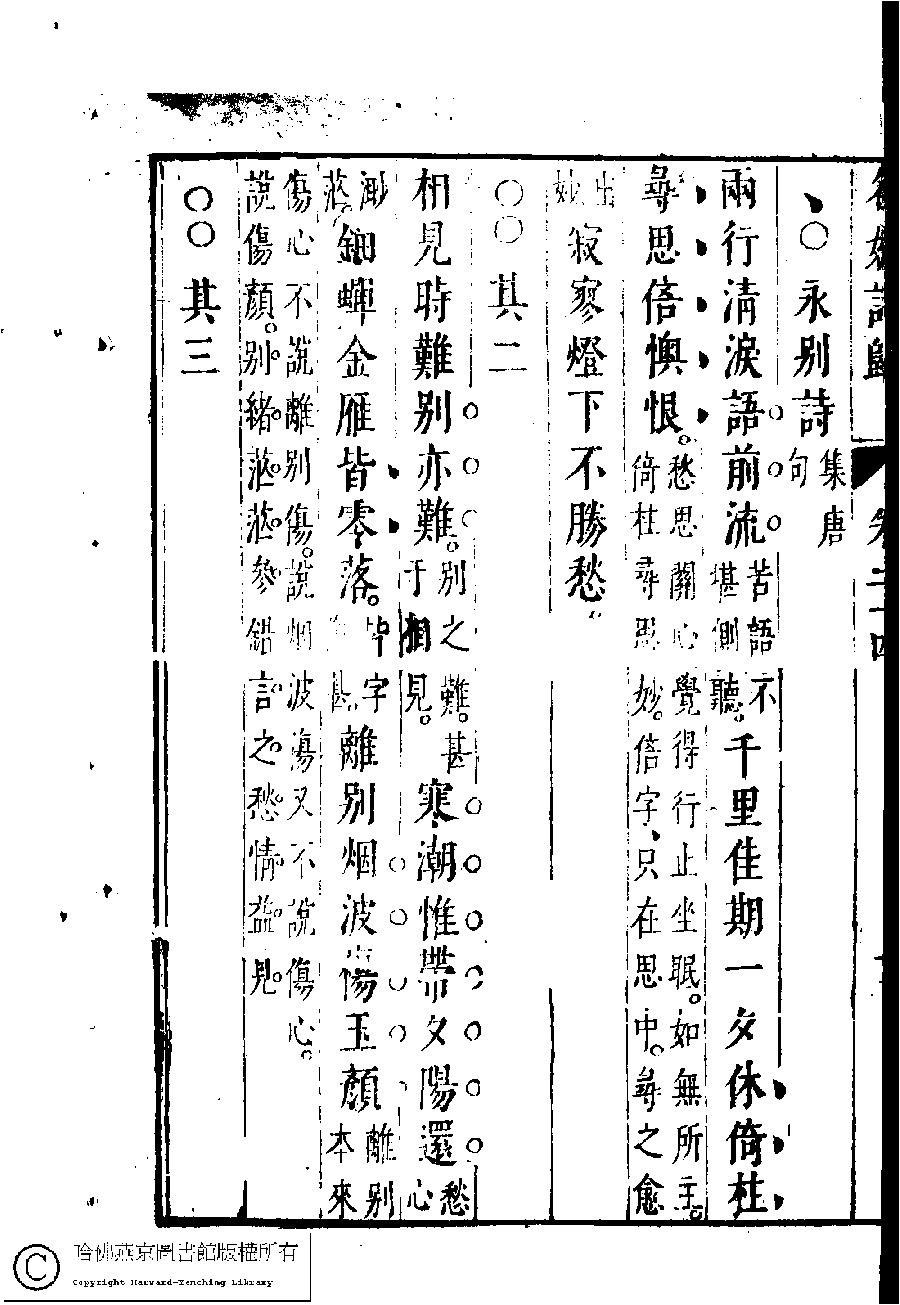 名媛詩歸 卷二十四
永別詩 集唐句
兩行清淚語前流 苦語不堪側聽。千里佳期一夕休倚柱
尋思倍懊恨。愁思關心覺得行止坐眠。如無所主。倚柱尋思妙。倍字、只在思中。尋之愈
出妙 寂寥燈下不勝愁。
其二
相見時難別亦難。別之難。甚于相見。寒潮惟帶夕陽還 愁心
渺茫 鈿蟬金雁皆零落。皆字甚 離別烟波傷玉顏 離別本來
傷心不說離別傷。說烟波傷又不說傷心。說傷顏。別緒茫茫參錯言之愁情益見。
其三
哈佛燕京圖書館版權所有
Copyright Harvard-Yenching Library